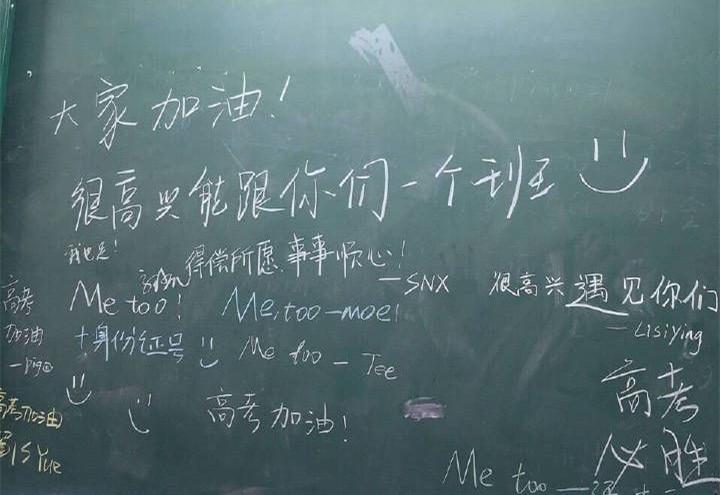 大家加油!
很高兴能跟你们一个班
我也是!
得偿所愿 事事顺心!
—SNX
很高兴遇见你们
—Lisiying
高考
加油
Me too!
Me too-moe!
+身份证号
Me too - Tee
高考加油
Yue
高考加油!
高考
必胜
Me too —